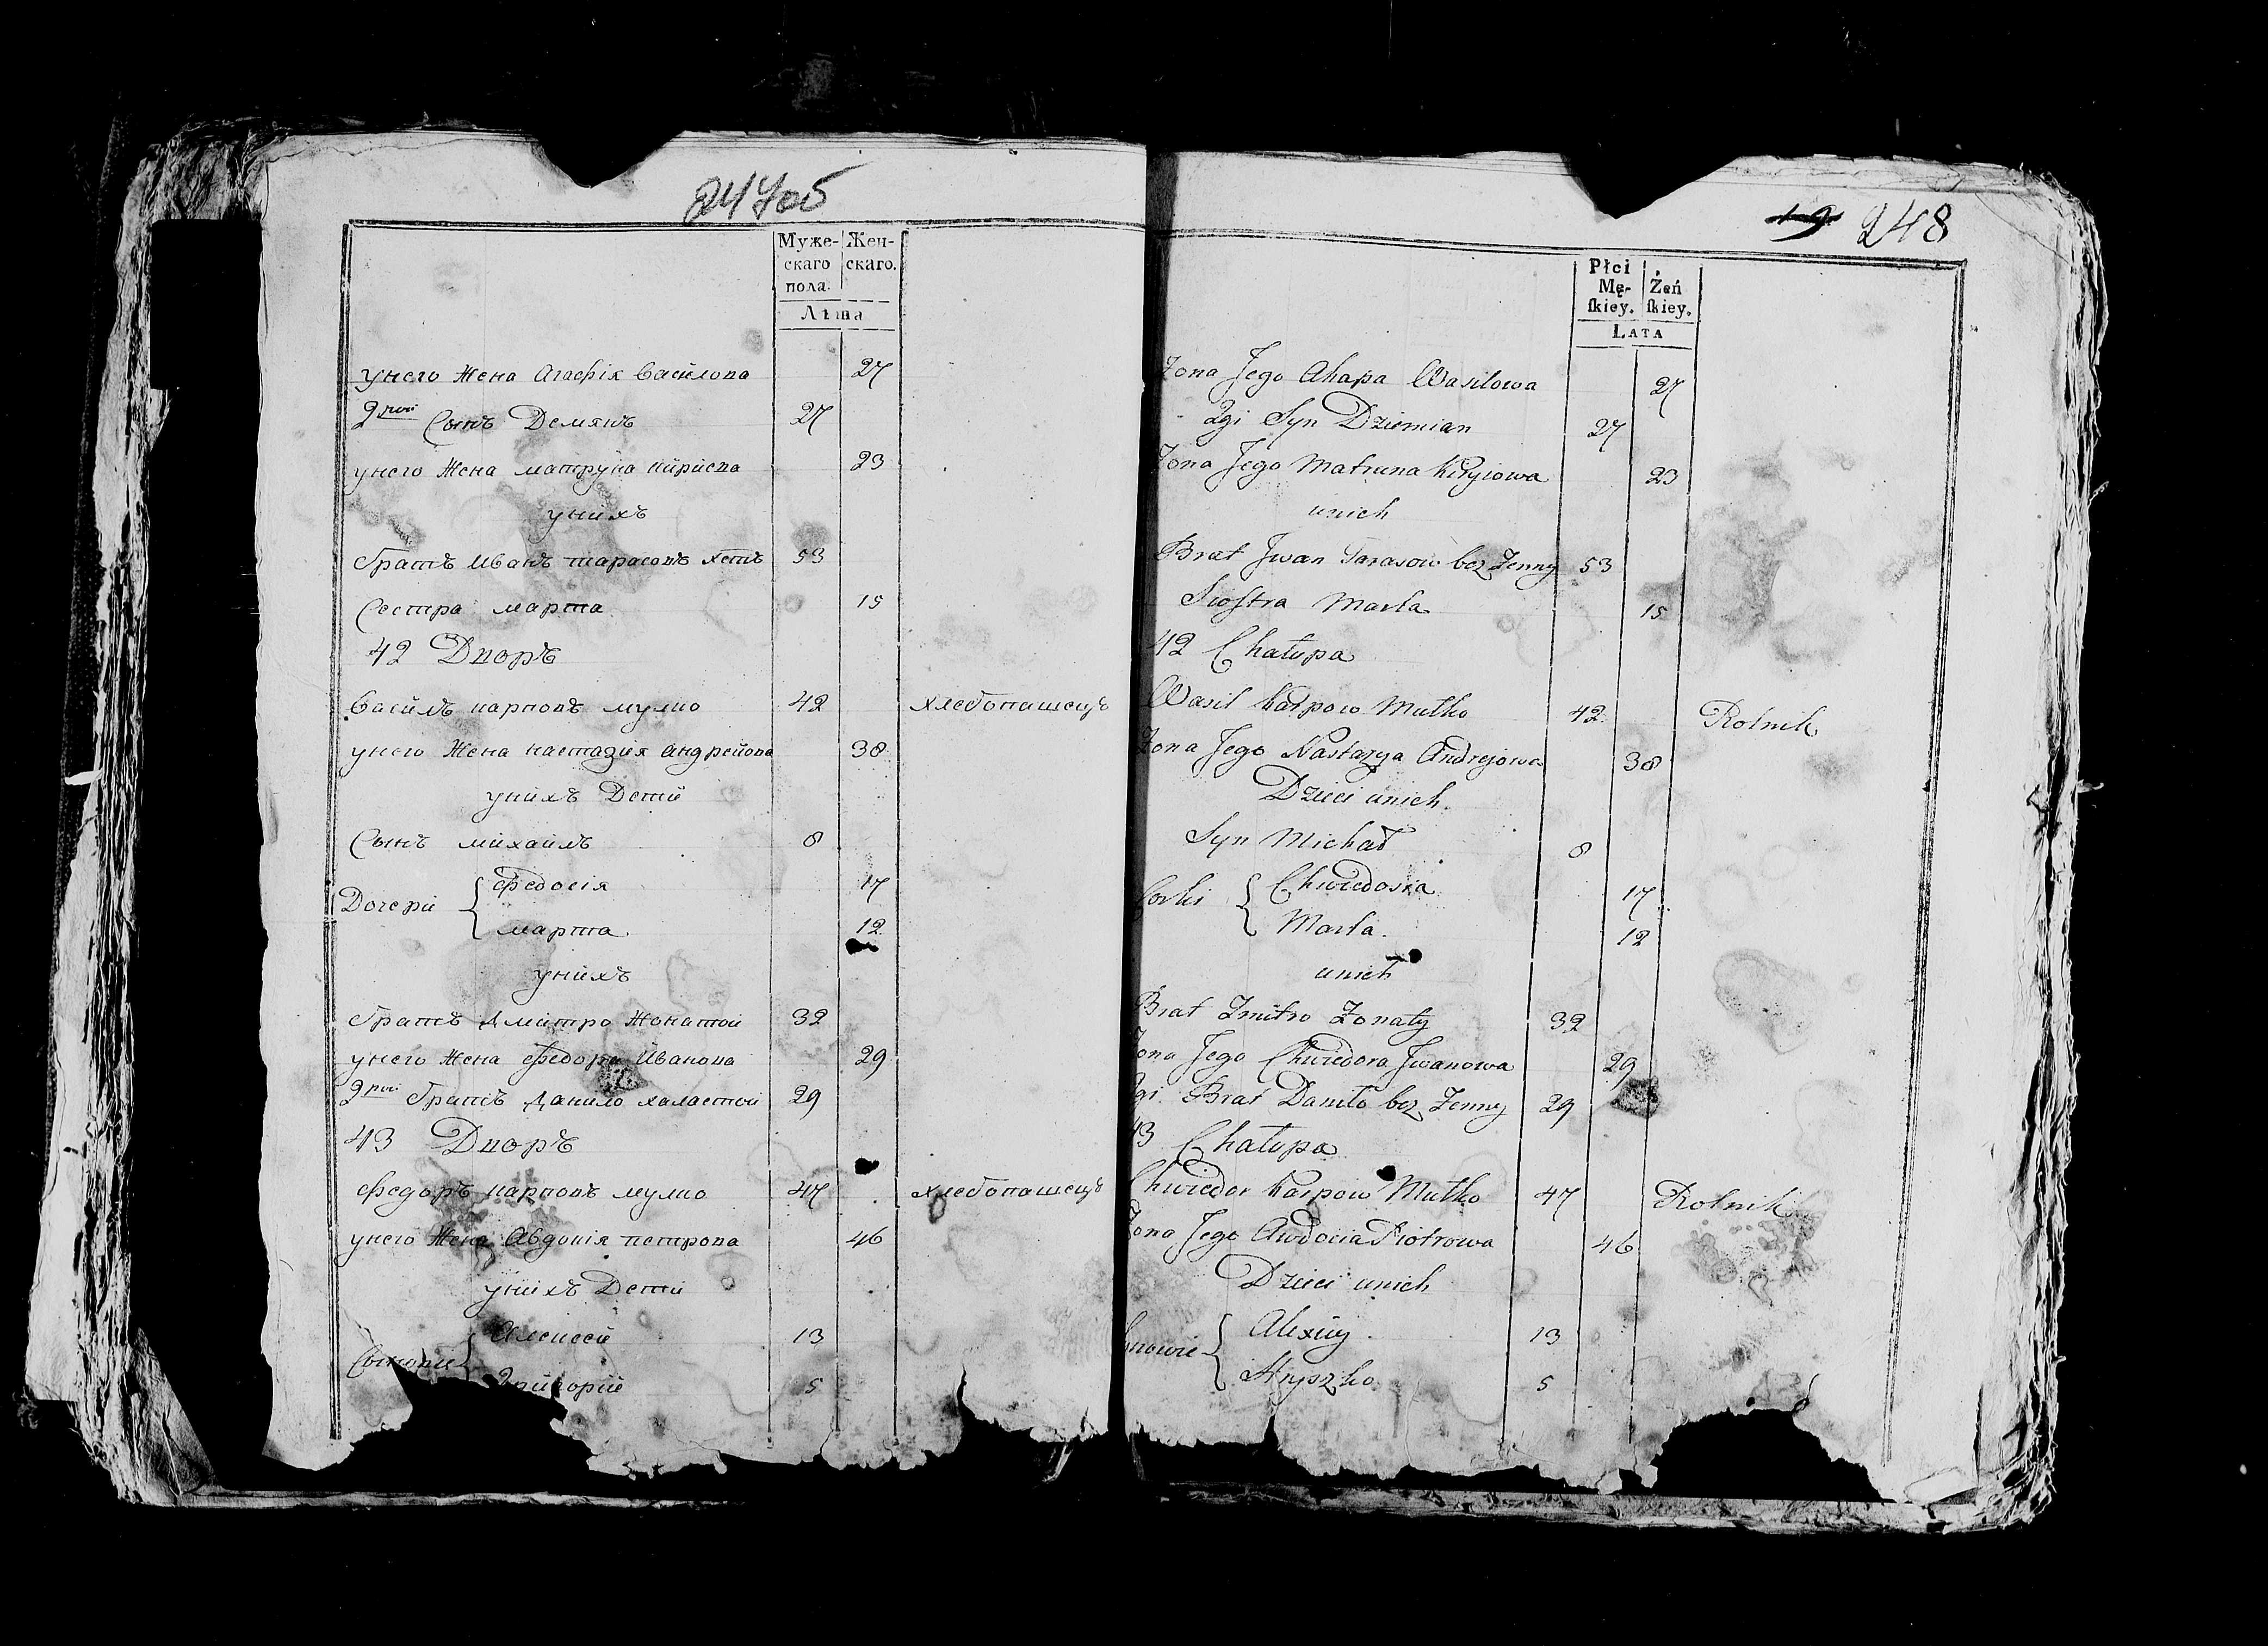 247об
Муже-
скаго
пола.
Жен-
скаго.
Лѣта
унего Жена Агафія Василова 27
2рои Сынъ Демянъ 27
унего Жена матруна кириева 23
унихъ
братъ Иванъ тарасовъ хстъ 53
Сестра марта 15
42 Дворъ
Василъ карповъ мулко 42 хлебопашецъ
унего Жена настазія андрейова 38
унихъ Детй
Сынъ михайлъ 8
Дочерй { федосія 17
марта 12
унихъ
братъ дмитро Жонатой 32
унего Жена федора Иванова 29
2рои братъ данило халастой 29
43 Дворъ
федоръ карповъ мулко 47 хлебопашецъ
унего Жена Авдокія петрова 46
унихъ Дети
Сынове { Алексей 13
Григорій 5
19 248
Płci
Mę-
ſkiey.
Żeń
ſkiey.
LATA
Zona Jego Ahapa Wasilowa 27
2gi Syn Dziemian 27
Zona Jego Matruna Kiryiowa 23
unich
Brat Jwan Tarasow bez Zenny 53
Siostra Marta 15
42 Chałupa
Wasil Karpow Mułko 42 Rolnik
Zona Jego Nastazya Andrejowa 38
Dzieci unich
Syn Michał 8
Corki { Chwiedosia 17
Marta 12
unich
Brat Zmitro Zonaty 32
Zona Jego Chwiedora Jwanowa 29
2gi Brat Daniło bez Zenny 29
43 Chałupa
Chwiedor Karpow Mułko 47 Rolnik
Zona Jego Awdocia Piotrowa 46
Dzieci unich
ynowie { Alexiey 13
Hryszko 5